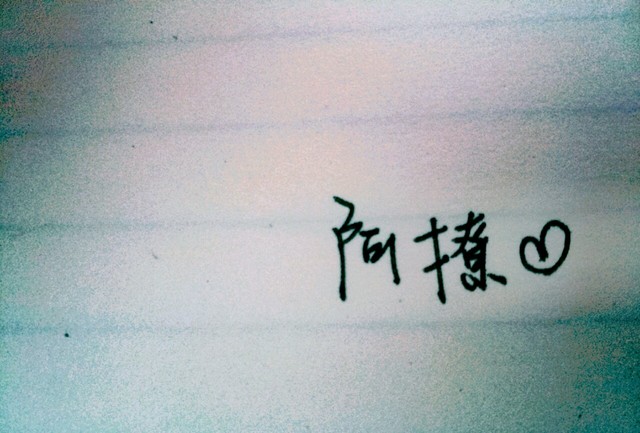 阿撩♡